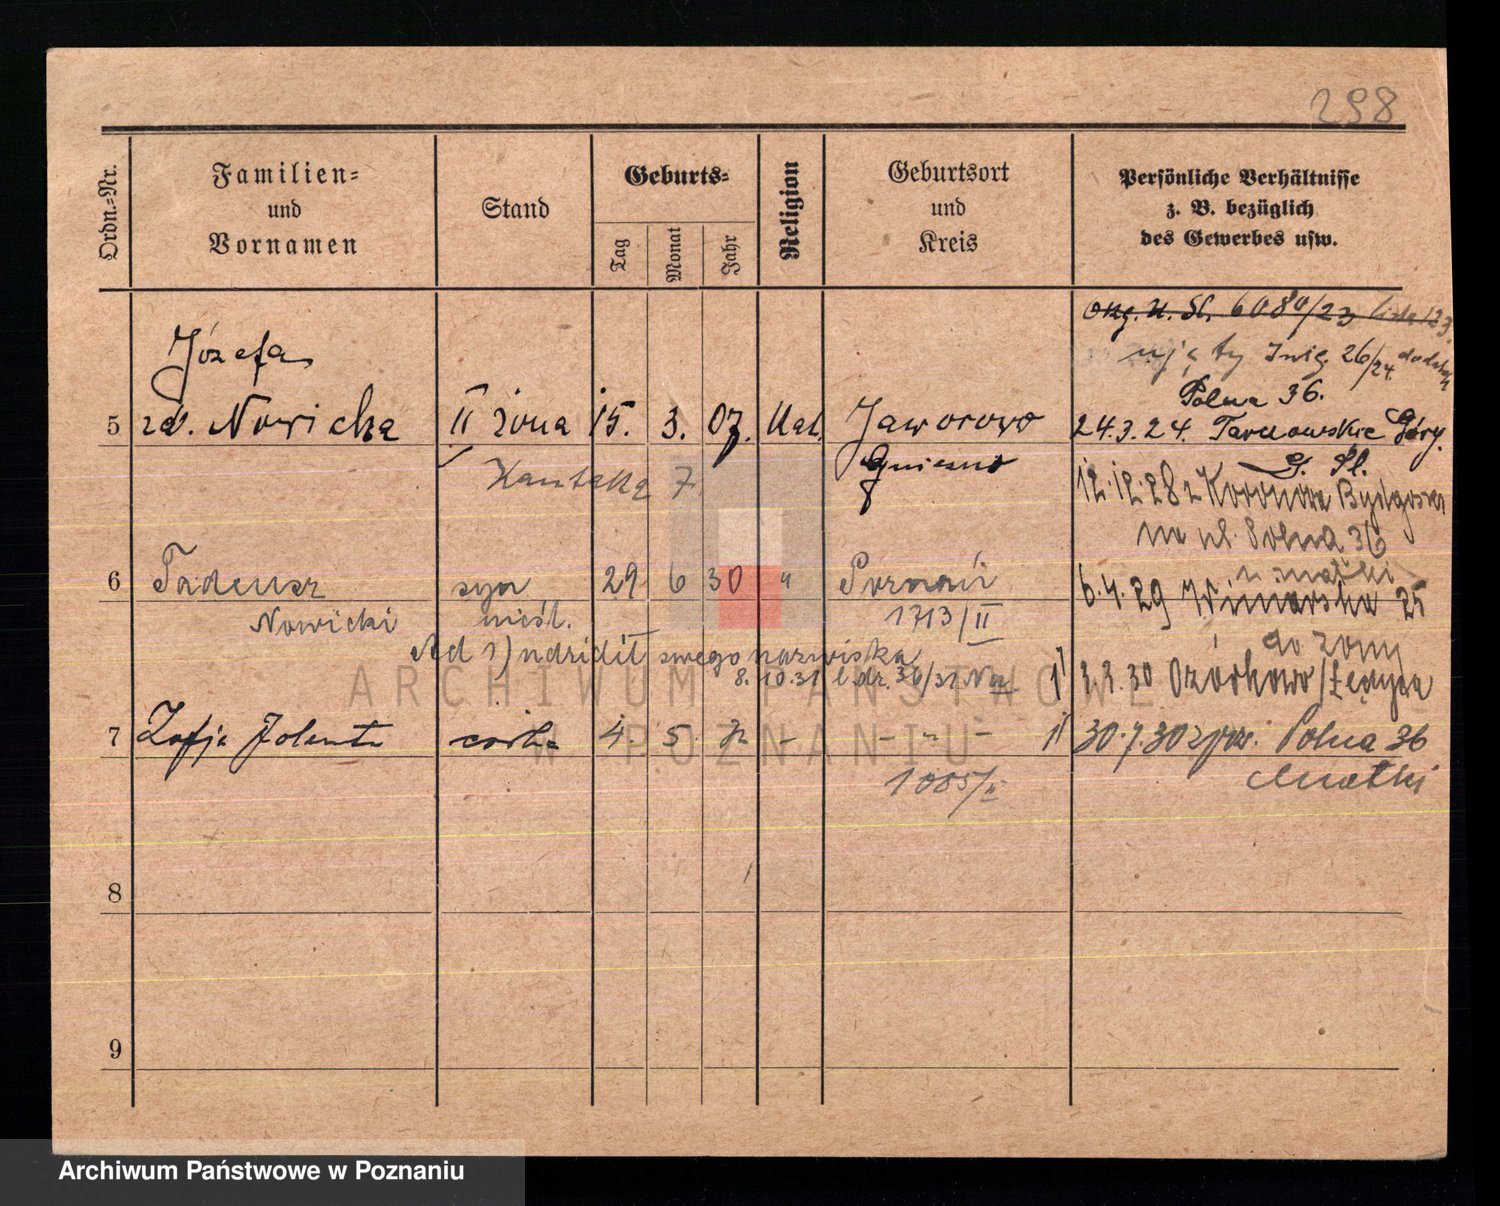 298
Ordn.-Nr.
Familien-
und
Vornamen
Stand
Geburts-
Tag
Monat
Jahr
Religion
Geburtsort
und
Kreis
Persönliche Verhältnisse
z. B. bezüglich
des Gewerbes usw.
6080/23
26/24
Józefa
Polna 36.
5 zd. Nowicka II żona 15. 3. 07. Kat. Jaworowo 24.3.24. Tarnowskie Góry.
Kantaka 7 Gniezno G. Śl.
12.12.28 z Koronowa Bydgoszcz
na ul. Polna 36
6 Tadeusz syn 29 6 30 " Poznań
u matki
6.4.29 Winiarska 25
Nowicki nieśl. 1713/II
do żony
Ad 1) udzielił swego nazwiska
8.10.31 l. dz. 36/31
1) 3.3.30 Ozorkowo/Łęczyca
7 Zofja Jolanta córka 4 5 - - " - 1) 30.7.30 Polna 36
1005/II matki
8
9
ARCHIWUM PAŃSTWOWE
W POZNANIU
Archiwum Państwowe w Poznaniu